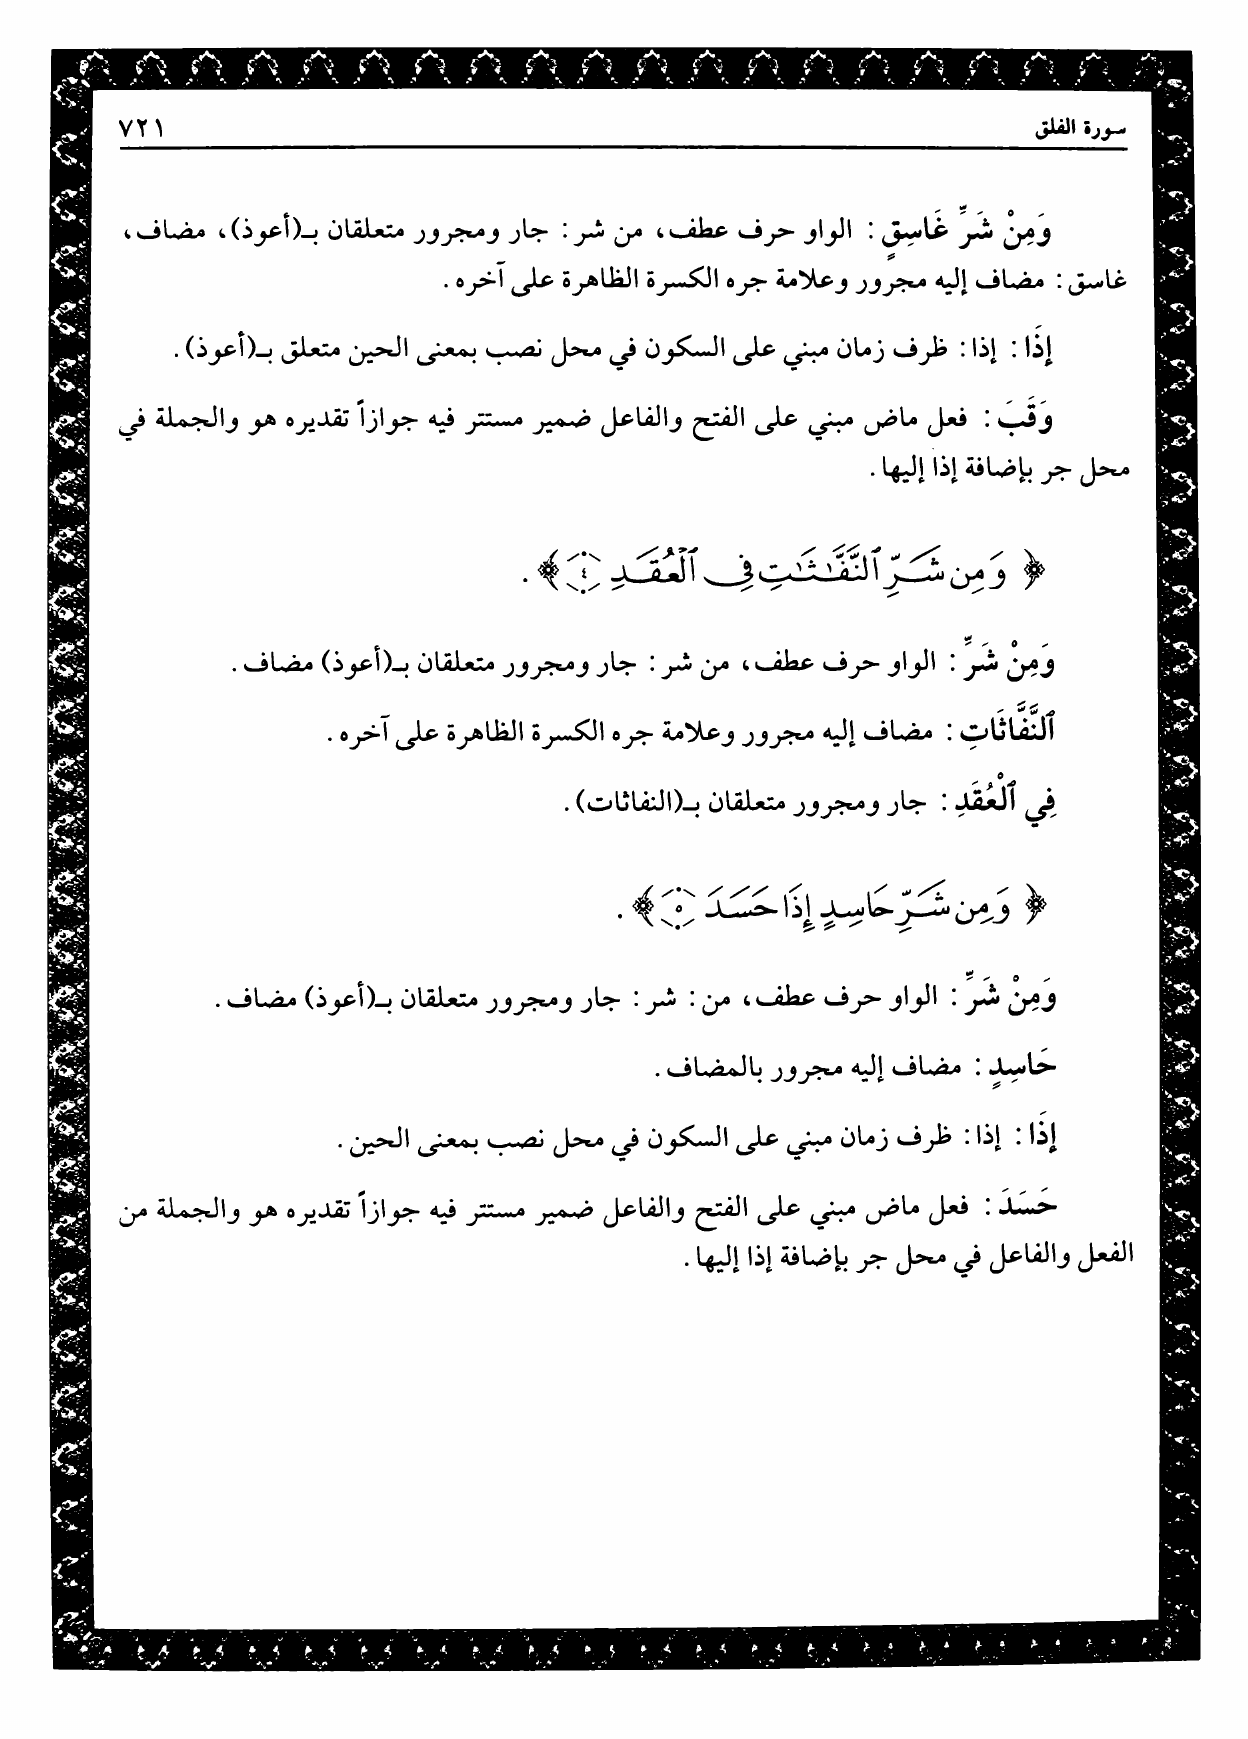 سورة الفلق
٧٢١
وَمِنْ شَرِّ غَاسِقٍ : الواو حرف عطف، من شر : جار ومجرور متعلقان بـ(أعوذ)، مضاف،
غاسق : مضاف إليه مجرور وعلامة جره الكسرة الظاهرة على آخره .
إِذَا : إذا : ظرف زمان مبني على السكون في محل نصب بمعنى الحين متعلق بـ(أعوذ).
وَقَبَ : فعل ماض مبني على الفتح والفاعل ضمير مستتر فيه جوازاً تقديره هو والجملة في
محل جر بإضافة إذا إليها .
﴿ وَمِن شَرِّ ٱلنَّفَّـٰثَـٰتِ فِى ٱلْعُقَدِ ٤ ﴾ .
وَمِنْ شَرِّ : الواو حرف عطف، من شر : جار ومجرور متعلقان بـ(أعوذ) مضاف .
ٱلنَّفَّاثَاتِ : مضاف إليه مجرور وعلامة جره الكسرة الظاهرة على آخره .
فِي ٱلْعُقَدِ : جار ومجرور متعلقان بـ(النفاثات).
﴿ وَمِن شَرِّ حَاسِدٍ إِذَا حَسَدَ ٥ ﴾ .
وَمِنْ شَرِّ : الواو حرف عطف، من : شر : جار ومجرور متعلقان بـ(أعوذ) مضاف .
حَاسِدٍ : مضاف إليه مجرور بالمضاف .
إِذَا : إذا : ظرف زمان مبني على السكون في محل نصب بمعنى الحين .
حَسَدَ : فعل ماض مبني على الفتح والفاعل ضمير مستتر فيه جوازاً تقديره هو والجملة من
الفعل والفاعل في محل جر بإضافة إذا إليها .